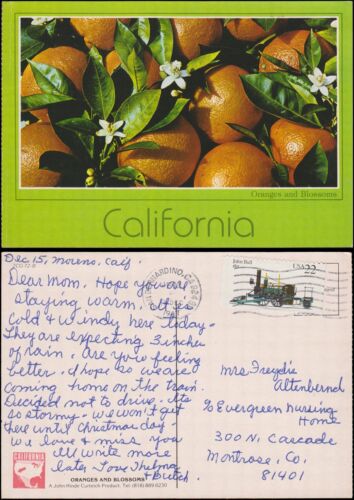 Oranges and Blossoms
California
Dec 15, Moreno, Calif.
Dear Mom, Hope you are
staying warm. It is
cold & windy here today -
They are expecting 3 inches
of rain. are you feeling
better. I hope so we are
coming home on the train.
Decided not to drive. Its
so stormy - we won't get
there until Christmas day
we love & miss you
Will write more
later, Love Thelma
& Butch
SAN BERNARDINO, CA
John Bull
USA 22
Mrs. Freydie
Altenbernd
c/o Evergreen Nursing
Home
300 N. Cascade
Montrose, Co.
81401
CALIFORNIA
ORANGES AND BLOSSOMS
A John Hinde Curteich Product. Tel: (818) 889 6230